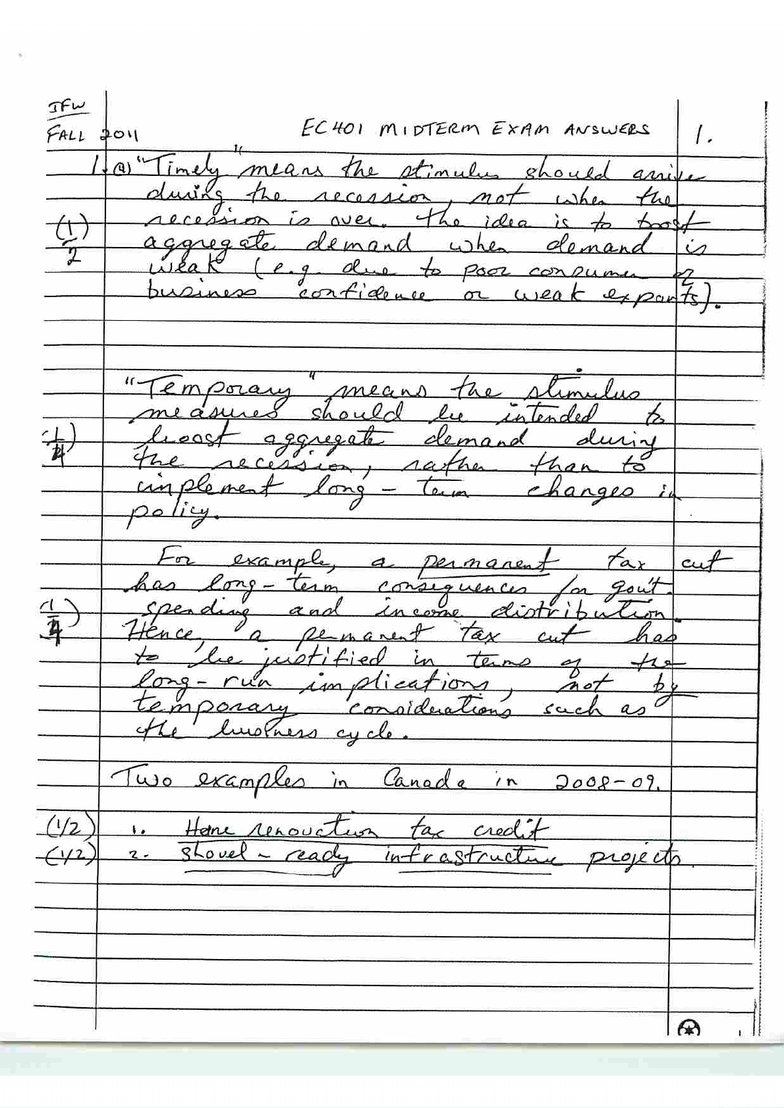 IFW
FALL 2011 EC401 MIDTERM EXAM ANSWERS 1.
1. (a) "Timely" means the stimulus should arrive
during the recession, not when the
recession is over. The idea is to boost
(1/2)
aggregate demand when demand is
weak (e.g. due to poor consumer or
business confidence or weak exports).
"Temporary" means the stimulus
measures should be intended to
(1/4) boost aggregate demand during
the recession, rather than to
implement long-term changes in
policy.
For example, a permanent tax cut
has long-term consequences for gov't
(1/4) spending and income distribution.
Hence, a permanent tax cut has
to be justified in terms of the
long-run implications, not by
temporary considerations such as
the business cycle.
Two examples in Canada in 2008-09.
(1/2) 1. Home renovation tax credit
(1/2) 2. Shovel-ready infrastructure projects